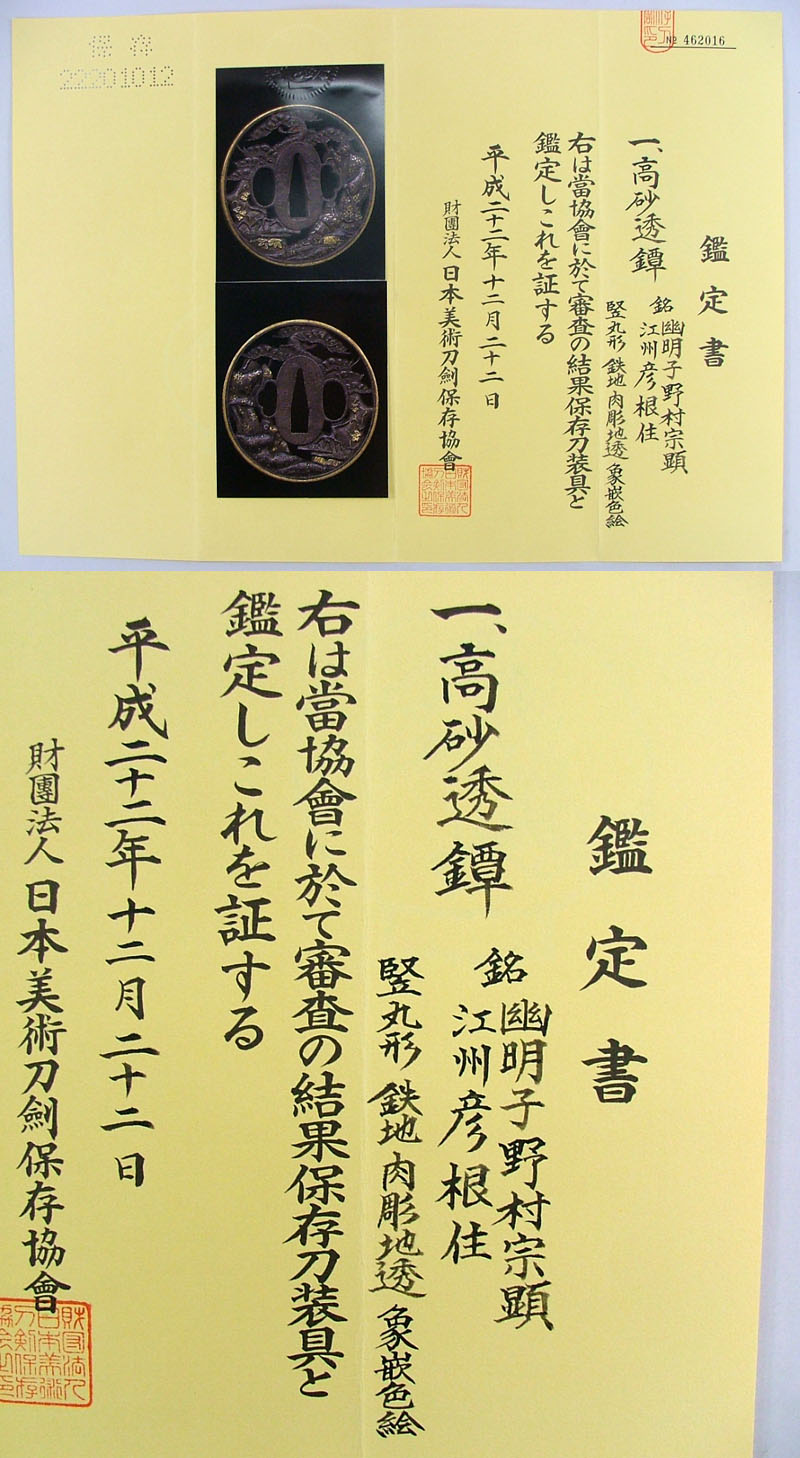 № 462016
鑑定書
一、高砂透鐔
銘 幽明子野村宗顕
江州彦根住
竪丸形 鉄地 肉彫地透 象嵌色絵
右は當協會に於て審査の結果保存刀装具と
鑑定しこれを証する
平成二十二年十二月二十二日
財團法人 日本美術刀劍保存協會
保存
22201012
鑑定書
一、高砂透鐔
銘 幽明子野村宗顕
江州彦根住
竪丸形 鉄地 肉彫地透 象嵌色絵
右は當協會に於て審査の結果保存刀装具と
鑑定しこれを証する
平成二十二年十二月二十二日
財團法人 日本美術刀劍保存協會